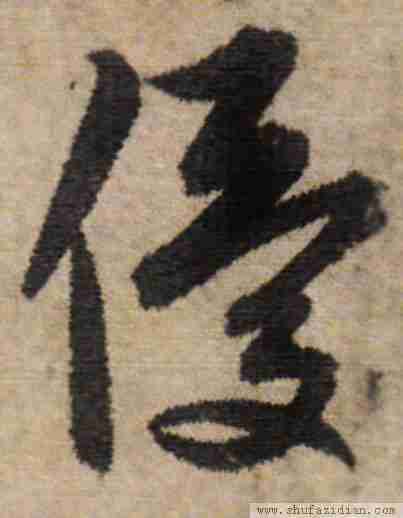 優
www.shufazidian.com